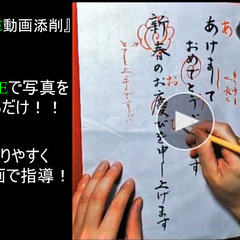 動画添削』
で写真を
だけ！！
りやすく
画で指導！
あけまして
おめでとう
す
新春のお慶びを申し上げます
とても上手です!!
あ
お